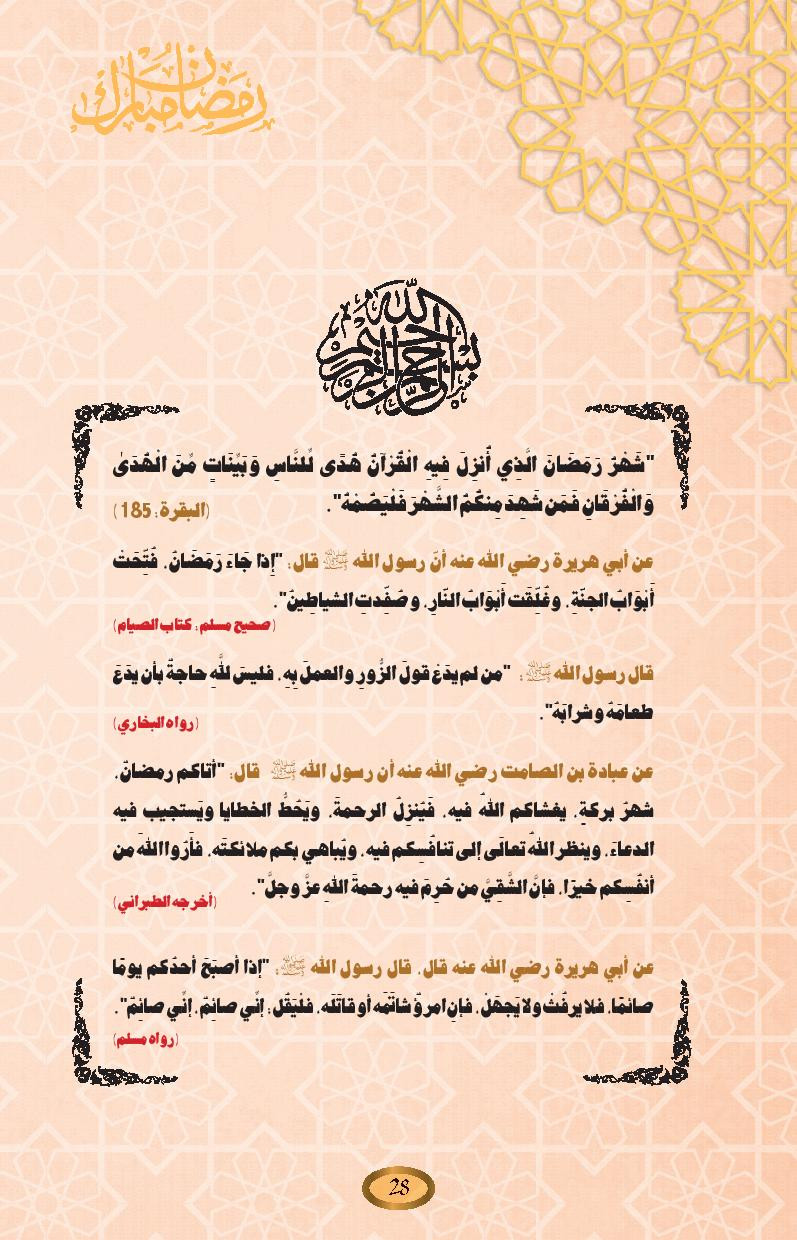 رمضان مبارك
بسم الله الرحمن الرحيم
"شَهْرُ رَمَضَانَ الَّذِي أُنزِلَ فِيهِ الْقُرْآنُ هُدًى لِّلنَّاسِ وَبَيِّنَاتٍ مِّنَ الْهُدَىٰ
وَالْفُرْقَانِ فَمَن شَهِدَ مِنكُمُ الشَّهْرَ فَلْيَصُمْهُ". (البقرة: 185)
عن أبي هريرة رضي الله عنه أنّ رسول الله ﷺ قال: "إِذَا جَاءَ رَمَضَانُ، فُتِّحَتْ
أَبْوَابُ الجنّةِ، وغُلِّقَت أَبْوَابُ النّارِ، وصُفِّدتِ الشياطِينُ".
(صحيح مسلم: كتاب الصيام)
قال رسول الله ﷺ: "من لم يدَعْ قولَ الزُّورِ والعملَ بِهِ، فليسَ للَّهِ حاجةٌ بأن يدَعَ
طعامَهُ وشرابَهُ". (رواه البخاري)
عن عبادة بن الصامت رضي الله عنه أن رسول الله ﷺ قال: "أتاكم رمضانُ،
شهرُ بركةٍ، يغشاكم اللهُ فيه، فيُنزِلُ الرحمةَ، ويَحُطُّ الخطايا ويَستجيب فيه
الدعاءَ، وينظر اللهُ تعالَى إلى تنافُسِكم فيه، ويُباهي بكم ملائكتَه، فأَرُوا اللهَ من
أنفُسِكم خيرًا، فإنَّ الشَّقِيَّ من حُرِمَ فيه رحمةَ اللهِ عزَّ وجلَّ". (أخرجه الطبراني)
عن أبي هريرة رضي الله عنه قال، قال رسول الله ﷺ: "إذا أصبَحَ أحدُكم يومًا
صائمًا، فلا يرفُثْ ولا يَجهَلْ، فإنِ امرؤٌ شاتَمَه أو قاتَلَه، فلْيَقُل: إنِّي صائمٌ، إنِّي صائمٌ".
(رواه مسلم)
28